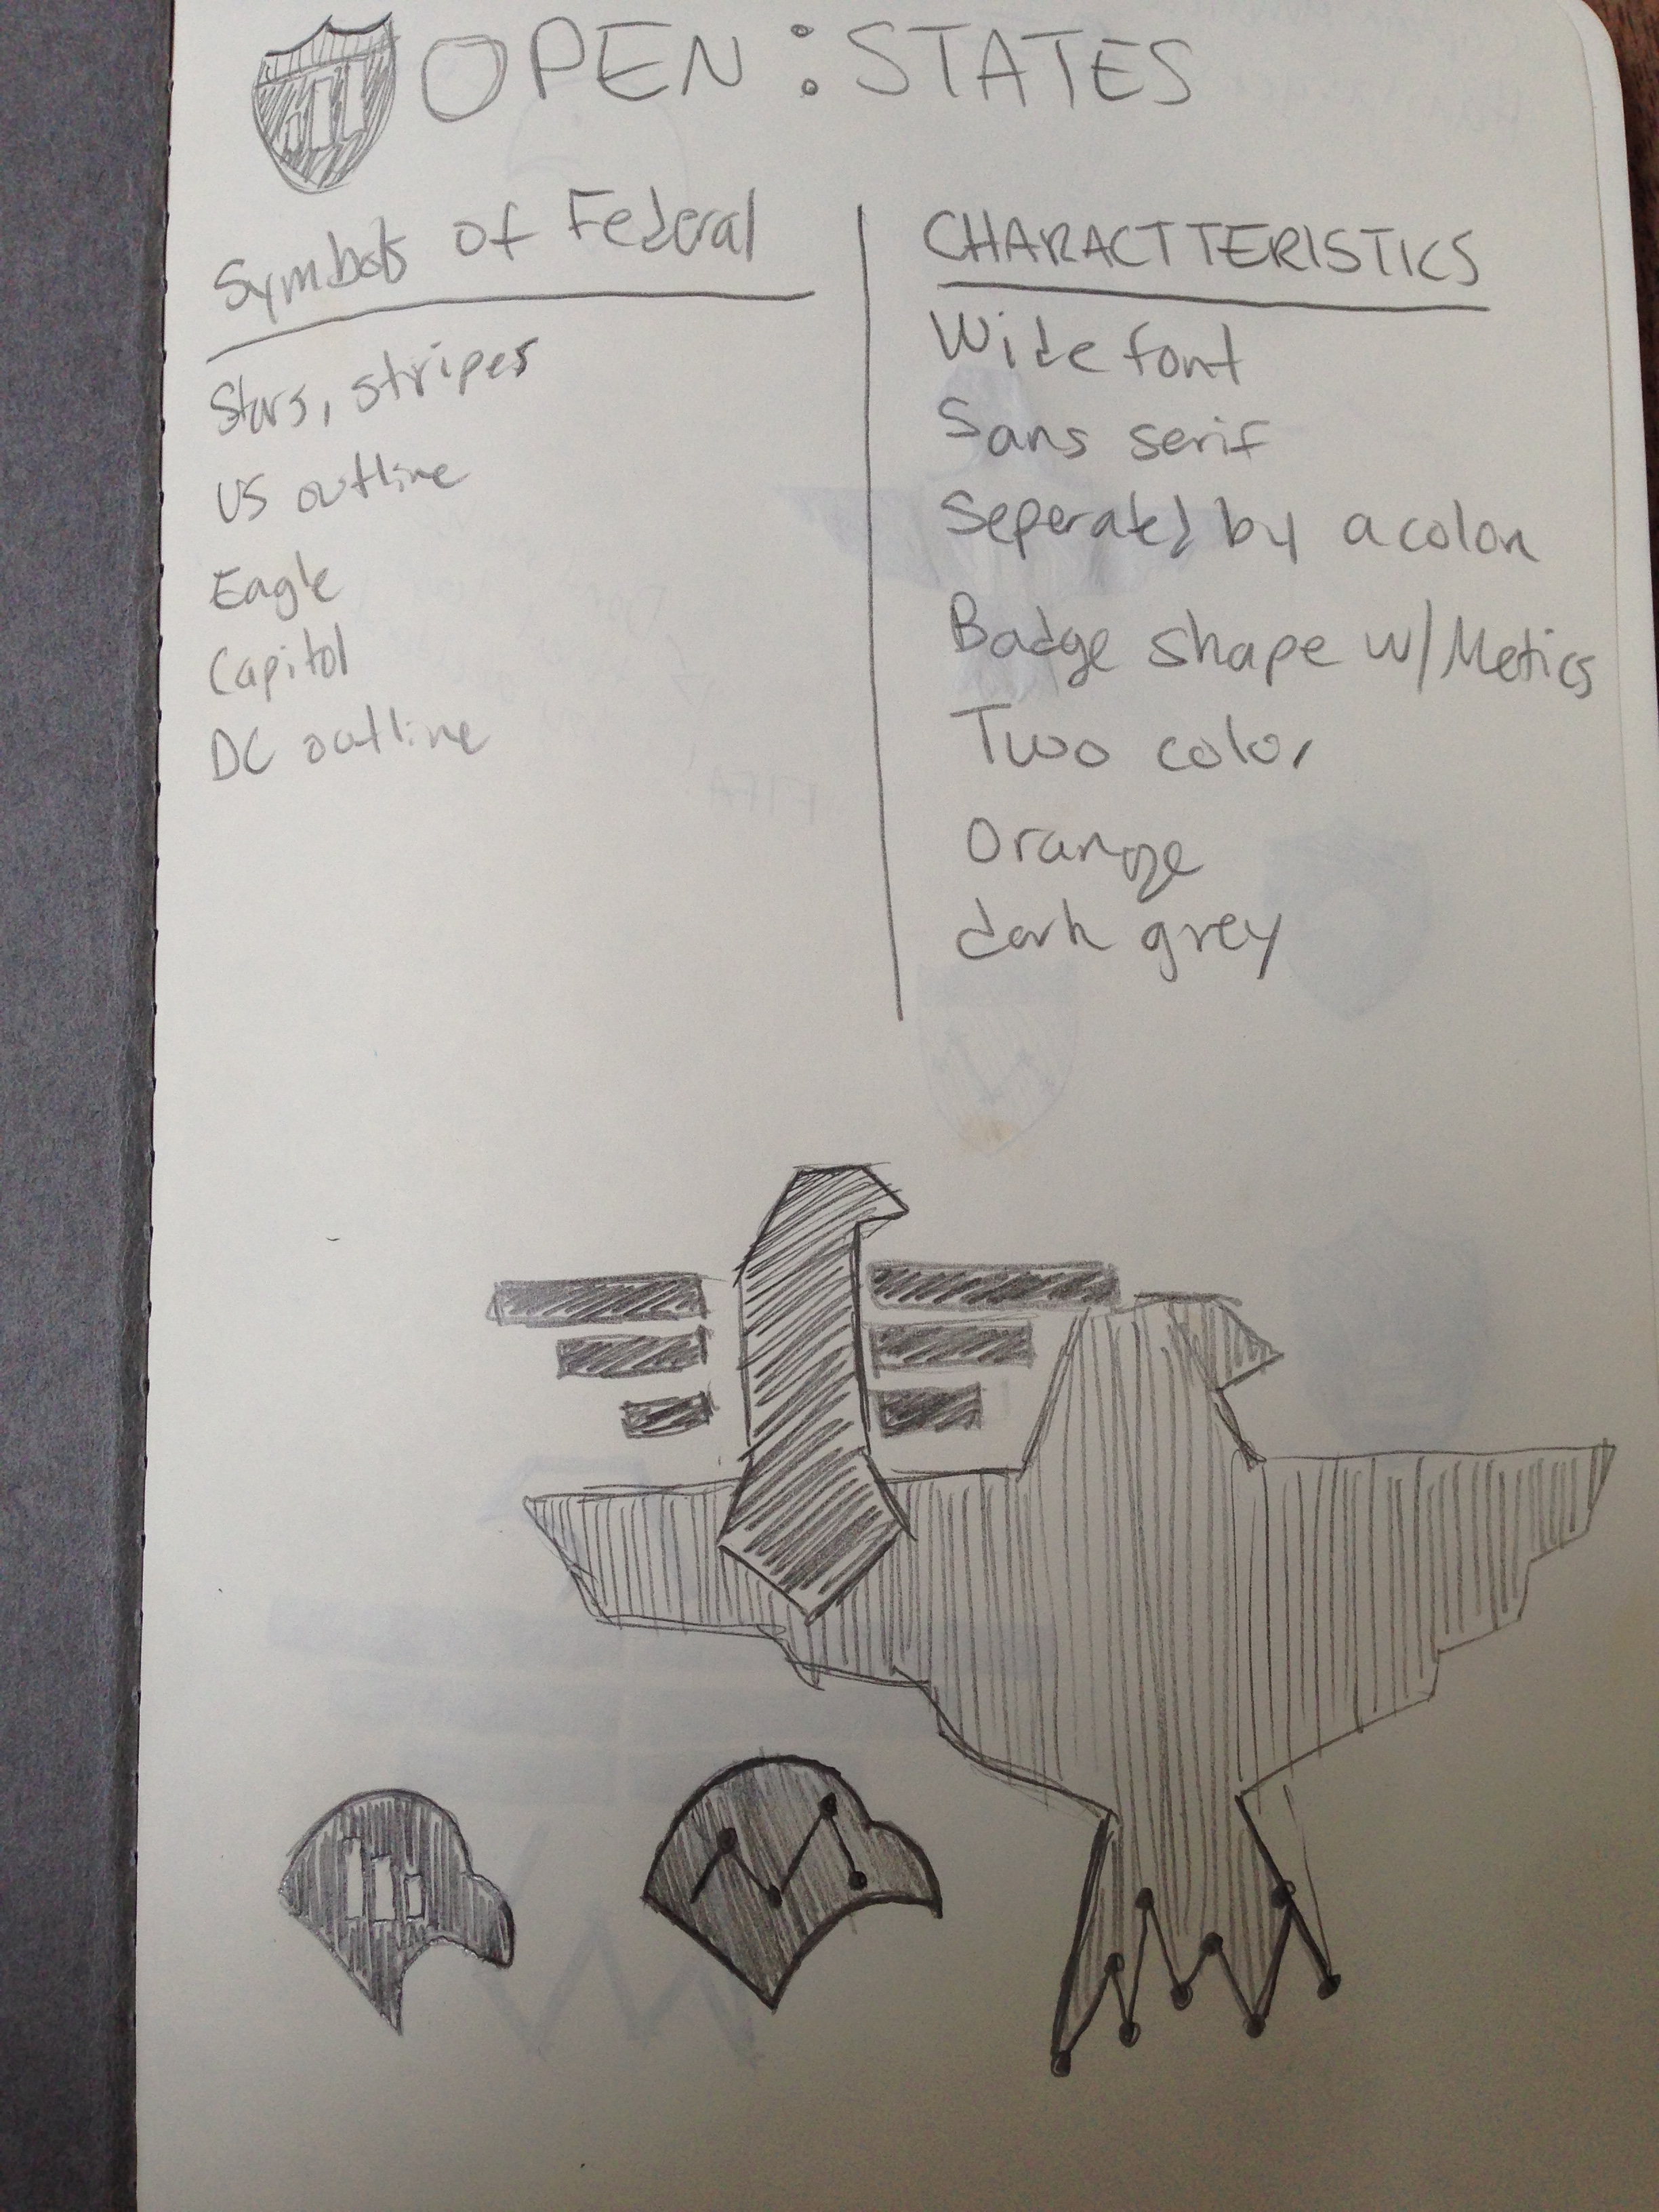 OPEN : STATES
Symbols of Federal
Stars, stripes
US outline
Eagle
Capitol
DC outline
CHARACTTERISTICS
Wide font
Sans serif
Seperated by a colon
Badge shape w/ Metics
Two color
Orange
dark grey